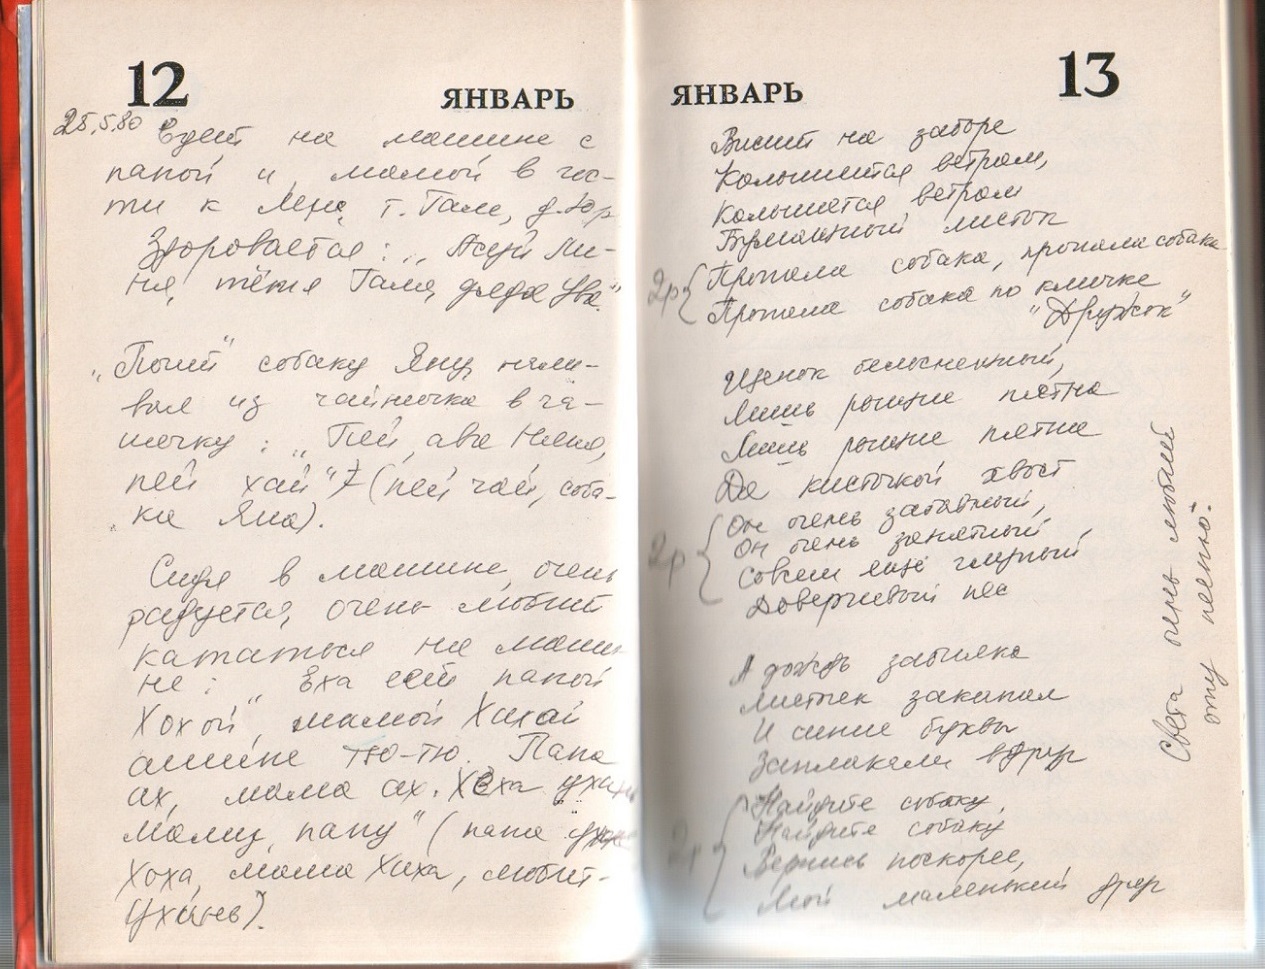 12
ЯНВАРЬ
25.5.80 Едет на машине с
папой и мамой в гос-
ти к Лене, т. Гале, д. Юр
Здоровается: „
тётя Галя, дядя Ува"
„Поит" собаку Яну, нали-
вая из чайничка в ча-
шечку: „Пей, ава Няня,
пей хай" (пей чай, соба-
ка Яна).
Сидя в машине, очень
радуется, очень любит
кататься на маши-
не: „Еха сей папой
Хохой", мамой Хахай
ашине тю-тю. Папа
ах, мама ах. Хоха
маму, папу" (папа
Хоха, мама Хаха, любит-
ухань).
ЯНВАРЬ
13
Висит на заборе
Колышется ветром,
Колышется ветром
Бумажный листок
2р { Пропала собака, пропала собака
Пропала собака по кличке
"Дружок"
Щенок белоснежный,
Лишь рыжие пятна
Лишь рыжие пятна
Да кисточкой хвост
2р { Он очень забавный,
Он очень занятный,
Совсем ещё глупый
Доверчивый пёс
А дождь забияка
Листочек закапал
И синие буквы
Заплакали вдруг
2р { Найдите собаку,
Найдите собаку
Вернись поскорее,
Мой маленький друг
Света очень любит
эту песню.